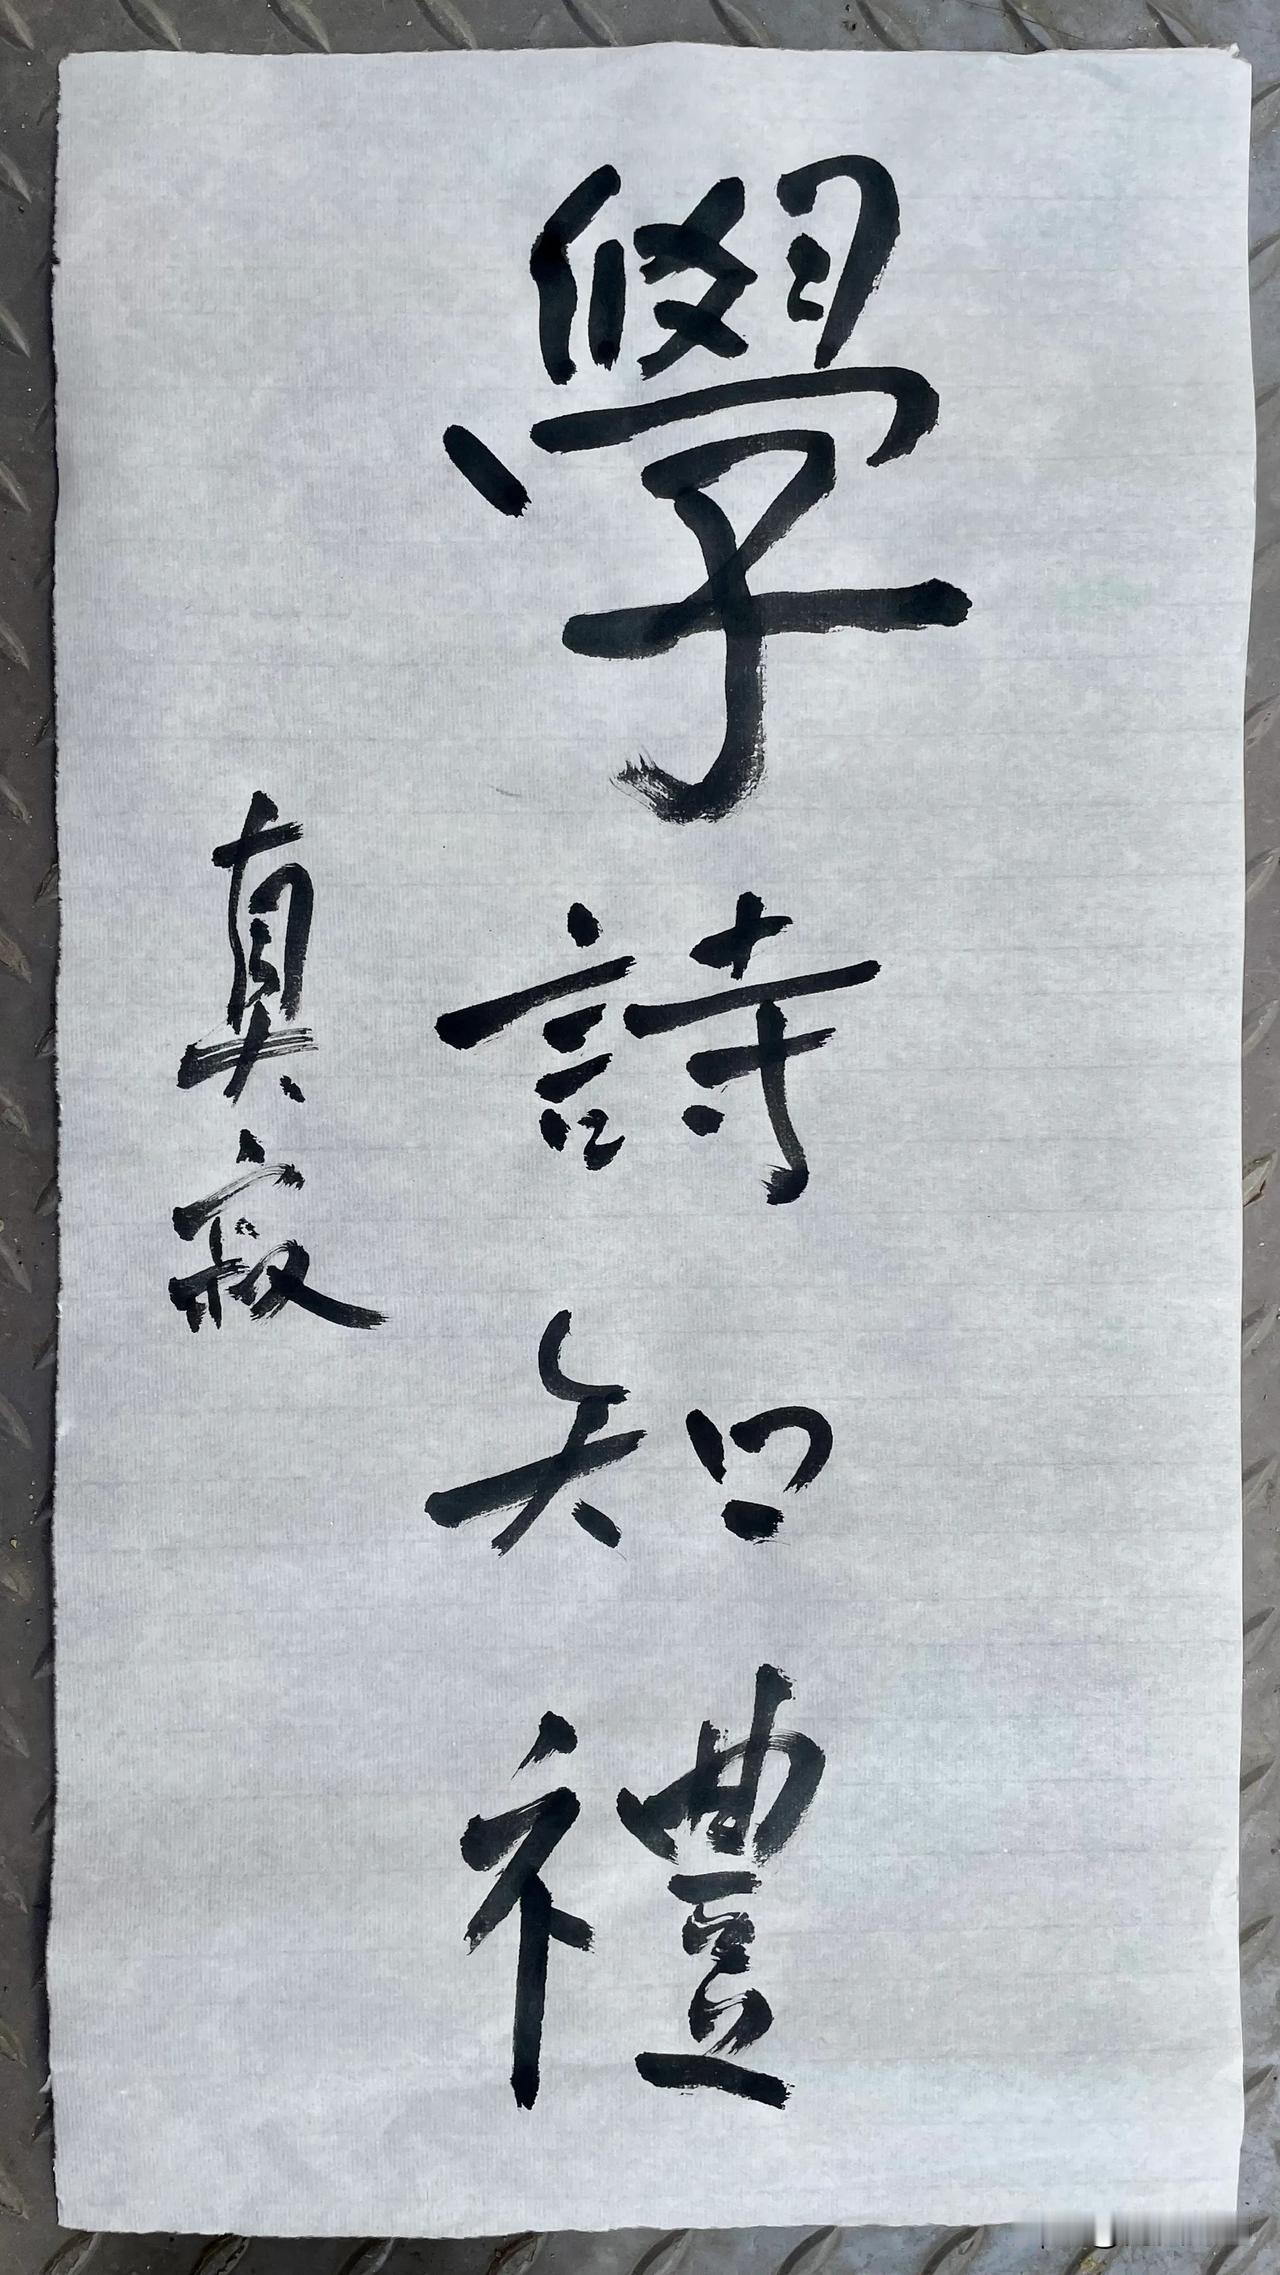 學詩知禮
真寂